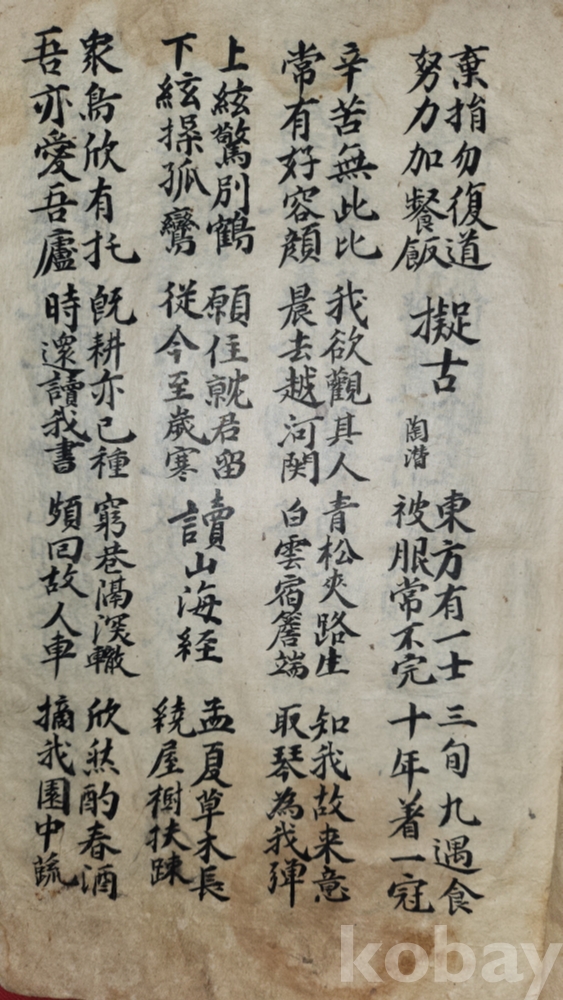 棄捐勿復道
努力加餐飯
擬古
陶潛
東方有一士
被服常不完
三旬九遇食
十年着一冠
辛苦無此比
常有好容顔
我欲觀其人
晨去越河関
青松夾路生
白雲宿簷端
知我故来意
取琴為我弾
上絃驚別鶴
下絃操孤鸞
願住就君留
從今至歲寒
讀山海経
孟夏草木長
繞屋樹扶踈
衆鳥欣有托
吾亦愛吾廬
既耕亦已種
時還讀我書
窮巷隔深轍
頻回故人車
欣然酌春酒
摘我園中蔬
kobay